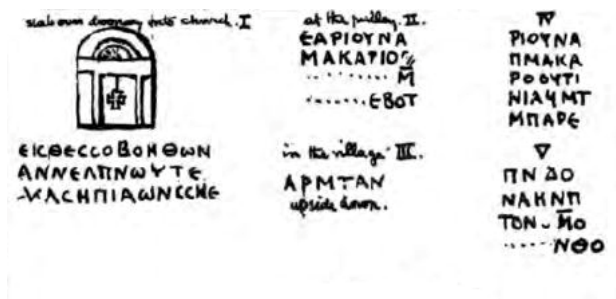 slab over doorway into church. I
ΕΙϹΘΕϹϹΟΒΟΗΘωΝ
ΑΝΝΕΛΠΝωΥΤΕ
at the pulley. II.
ΕΑΡΙΟΥΝΑ
ΜΑΚΑΡΙΟ
........Μ̅
.......ΕΒΟΤ
in the village III.
ΑΡΜΤΑΝ
upside down.
IV
ΡΙΟΥΝΑ
ΠΜΑΚΑ
ΡΟΘΥΤΙ
ΝΙΑΥΜΤ
ΜΠΑΡΕ
V
ΠΝ ΔΟ
ΝΑΚΝΠ
ΤΟΝ - Μ̅Ο
......ΝΘΟ